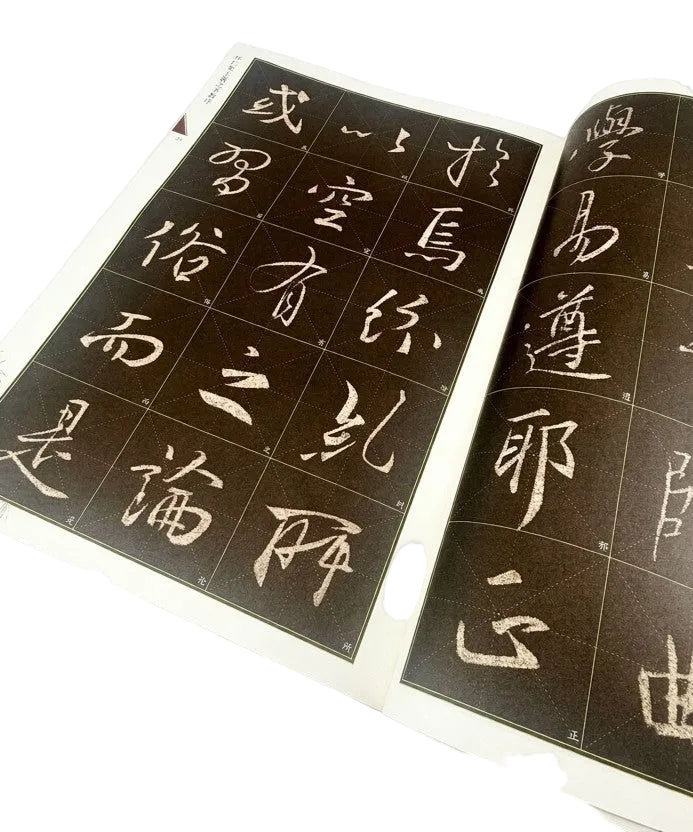 曲
學易遵耶正
於焉紛糺所
以空有之論
或習俗而是